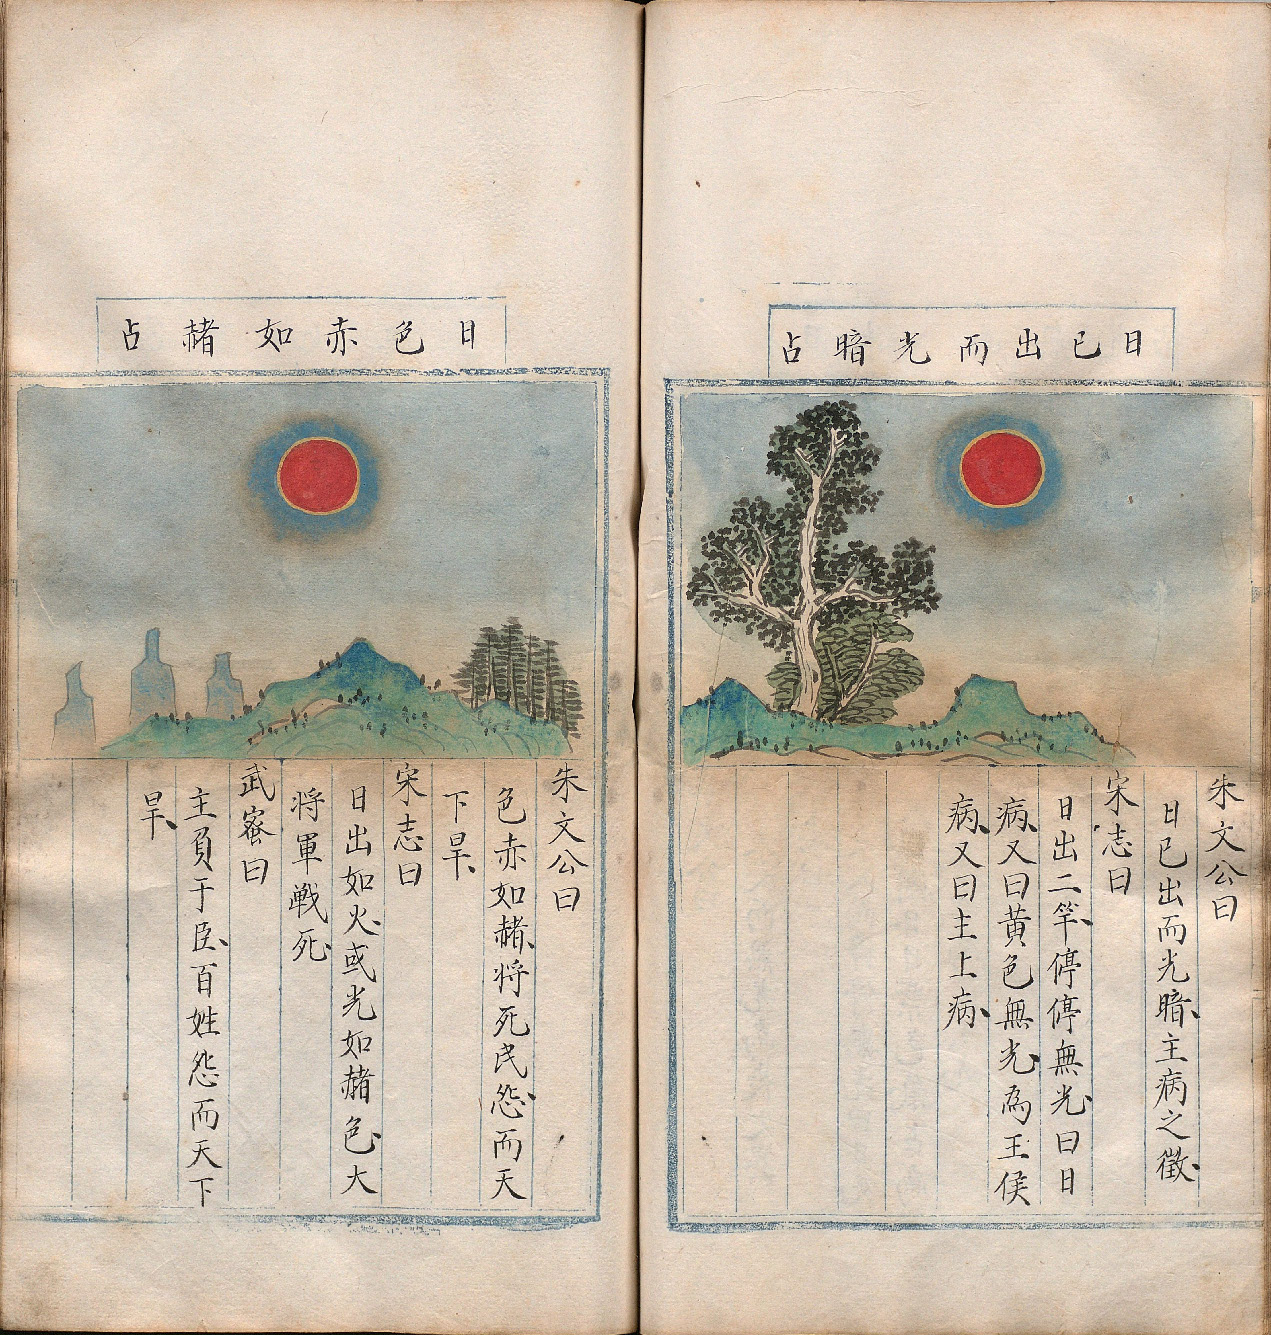 日已出而光暗占
朱文公曰
日已出而光暗主病之徵
宋志曰
日出二竿停停無光曰日
病又曰黄色無光為王侯
病又曰主上病
日色赤如赭占
朱文公曰
色赤如赭将死民怨而天
下旱
宋志曰
日出如火或光如赭色大
將軍戦死
武宻曰
主負于臣百姓怨而天下
旱